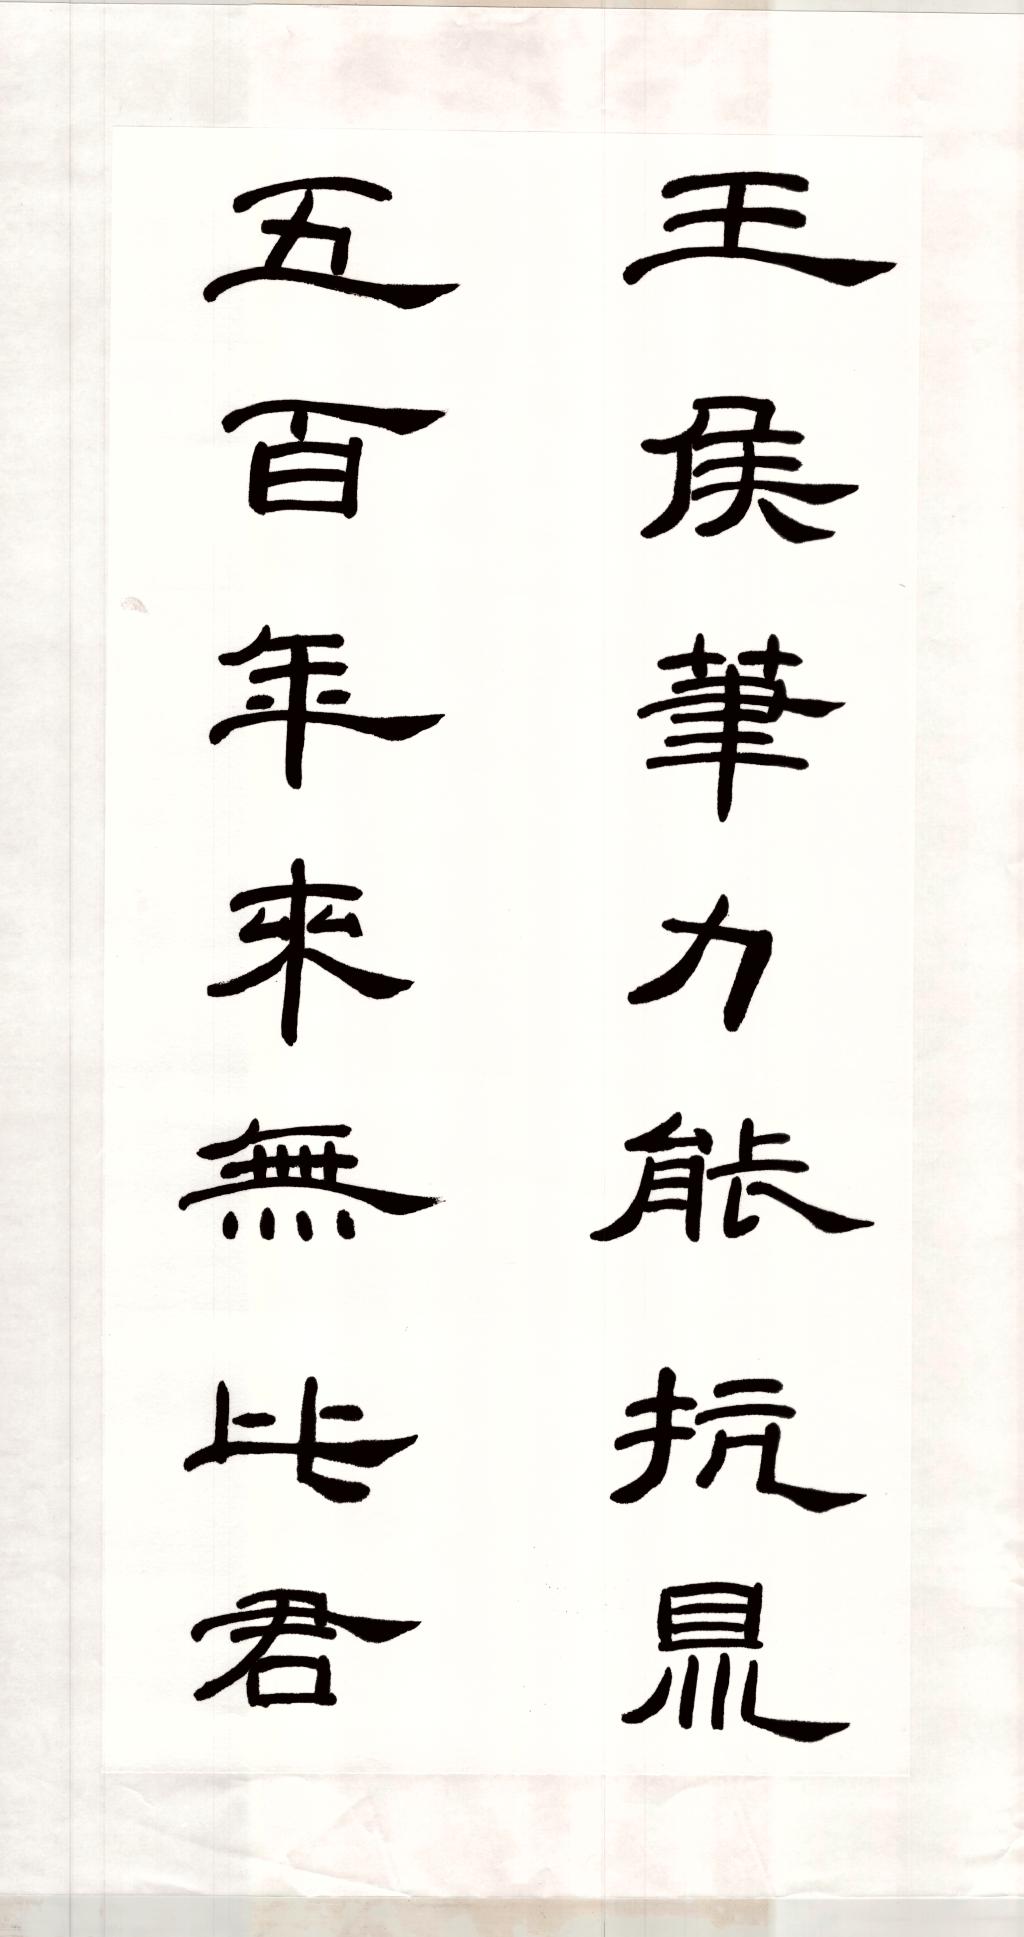 王侯筆力能抗鼎
五百年來無此君